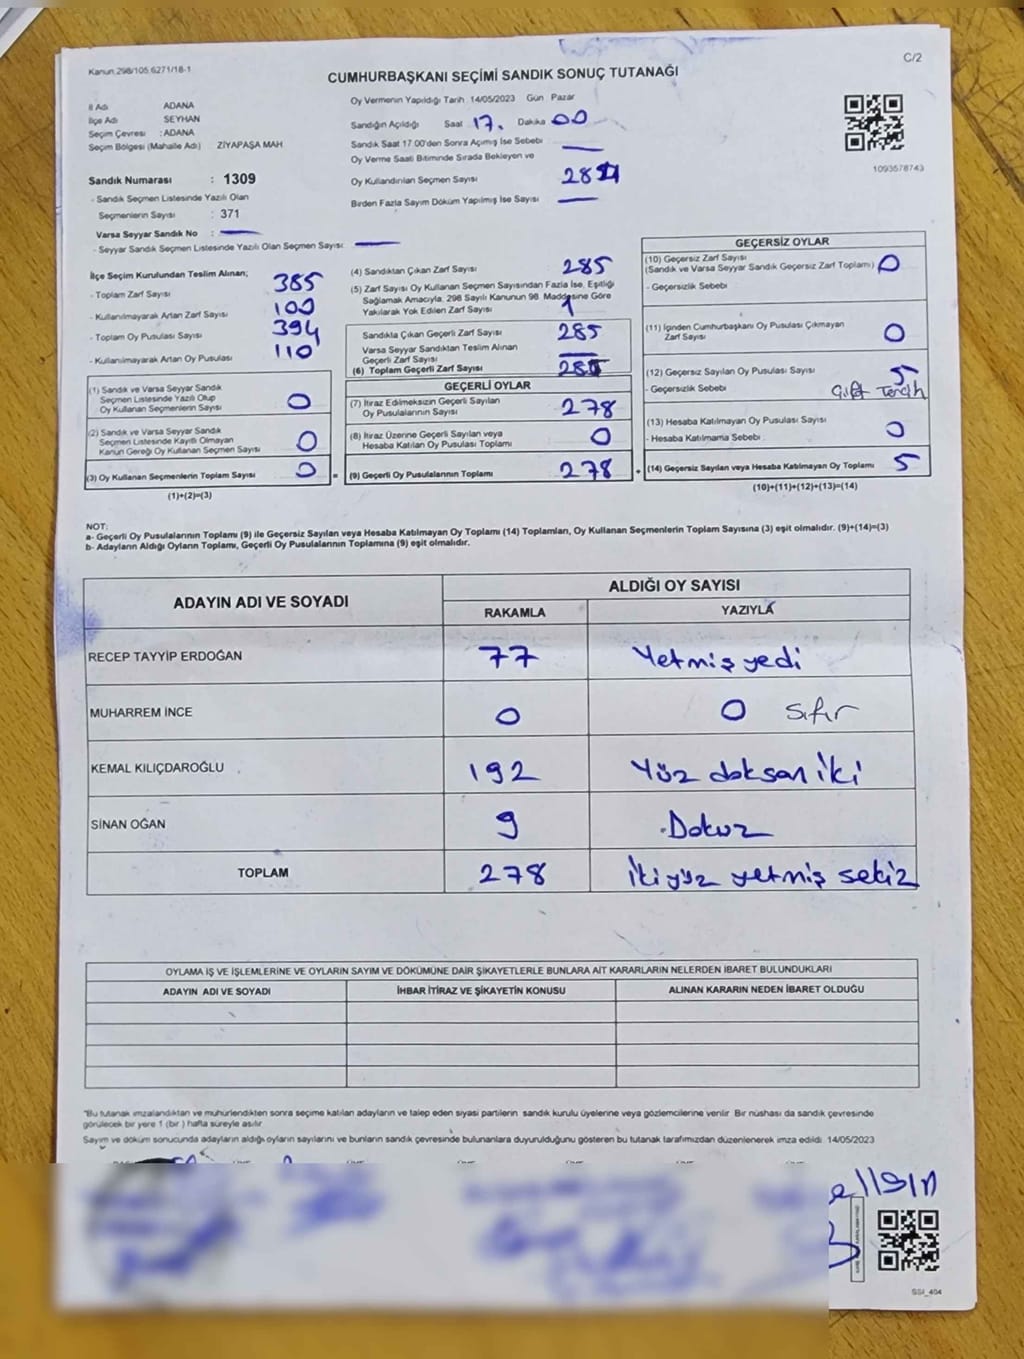 Kanun 298/105.6271/18-1
C/2
CUMHURBAŞKANI SEÇİMİ SANDIK SONUÇ TUTANAĞI
İl Adı ADANA
İlçe Adı SEYHAN
Seçim Çevresi : ADANA
Seçim Bölgesi (Mahalle Adı) ZİYAPAŞA MAH
Sandık Numarası : 1309
- Sandık Seçmen Listesinde Yazılı Olan
Seçmenlerin Sayısı : 371
Varsa Seyyar Sandık No :
- Seyyar Sandık Seçmen Listesinde Yazılı Olan Seçmen Sayısı:
Oy Vermenin Yapıldığı Tarih 14/05/2023 Gün Pazar
Sandığın Açıldığı Saat 17. Dakika 00
Sandık Saat 17.00'den Sonra Açımış İse Sebebi
Oy Verme Saati Bitiminde Sırada Bekleyen ve
Oy Kullandırılan Seçmen Sayısı
Birden Fazla Sayım Döküm Yapılmış İse Sayısı
1093578743
İlçe Seçim Kurulundan Teslim Alınan;
- Toplam Zarf Sayısı 385
- Kullanılmayarak Artan Zarf Sayısı 100
- Toplam Oy Pusulası Sayısı 394
- Kullanılmayarak Artan Oy Pusulası 110
(1) Sandık ve Varsa Seyyar Sandık
Seçmen Listesinde Yazılı Olup
Oy Kullanan Seçmenlerin Sayısı 0
(2) Sandık ve Varsa Seyyar Sandık
Seçmen Listesinde Kayıtlı Olmayan
Kanun Gereği Oy Kullanan Seçmen Sayısı 0
(3) Oy Kullanan Seçmenlerin Toplam Sayısı 0 =
(1)+(2)=(3)
(4) Sandıktan Çıkan Zarf Sayısı 285
(5) Zarf Sayısı Oy Kullanan Seçmen Sayısından Fazla İse, Eşitliği
Sağlamak Amacıyla, 298 Sayılı Kanunun 98. Maddesine Göre
Yakılarak Yok Edilen Zarf Sayısı 1
Sandıkta Çıkan Geçerli Zarf Sayısı 285
Varsa Seyyar Sandıktan Teslim Alınan
Geçerli Zarf Sayısı
(6) Toplam Geçerli Zarf Sayısı
GEÇERLİ OYLAR
(7) İtiraz Edilmeksizin Geçerli Sayılan
Oy Pusulalarının Sayısı 278
(8) İtiraz Üzerine Geçerli Sayılan veya
Hesaba Katılan Oy Pusulası Toplamı 0
(9) Geçerli Oy Pusulalarının Toplamı 278 +
GEÇERSİZ OYLAR
(10) Geçersiz Zarf Sayısı
(Sandık ve Varsa Seyyar Sandık Geçersiz Zarf Toplamı) 0
- Geçersizlik Sebebi
(11) İçinden Cumhurbaşkanı Oy Pusulası Çıkmayan
Zarf Sayısı 0
(12) Geçersiz Sayılan Oy Pusulası Sayısı 5
- Geçersizlik Sebebi Çift Tercih
(13) Hesaba Katılmayan Oy Pusulası Sayısı 0
- Hesaba Katılmama Sebebi
(14) Geçersiz Sayılan veya Hesaba Katılmayan Oy Toplamı 5
(10)+(11)+(12)+(13)=(14)
NOT:
a- Geçerli Oy Pusulalarının Toplamı (9) ile Geçersiz Sayılan veya Hesaba Katılmayan Oy Toplamı (14) Toplamları, Oy Kullanan Seçmenlerin Toplam Sayısına (3) eşit olmalıdır. (9)+(14)=(3)
b- Adayların Aldığı Oyların Toplamı, Geçerli Oy Pusulalarının Toplamına (9) eşit olmalıdır.
ADAYIN ADI VE SOYADI ALDIĞI OY SAYISI
RAKAMLA YAZIYLA
RECEP TAYYİP ERDOĞAN 77 Yetmiş yedi
MUHARREM İNCE 0 0 Sıfır
KEMAL KILIÇDAROĞLU 192 Yüz doksan iki
SİNAN OĞAN 9 Dokuz
TOPLAM 278 İkiyüz yetmiş sekiz
OYLAMA İŞ VE İŞLEMLERİNE VE OYLARIN SAYIM VE DÖKÜMÜNE DAİR ŞİKAYETLERLE BUNLARA AİT KARARLARIN NELERDEN İBARET BULUNDUKLARI
ADAYIN ADI VE SOYADI İHBAR İTİRAZ VE ŞİKAYETİN KONUSU ALINAN KARARIN NEDEN İBARET OLDUĞU
"Bu tutanak imzalandıktan ve mühürlendikten sonra seçime katılan adayların ve talep eden siyasi partilerin sandık kurulu üyelerine veya gözlemcilerine verilir Bir nüshası da sandık çevresinde
görülecek bir yere 1 (bir) hafta süreyle asılır
Sayım ve döküm sonucunda adayların aldığı oyların sayılarını ve bunların sandık çevresinde bulunanlara duyurulduğunu gösteren bu tutanak tarafımızdan düzenlenerek imza edildi 14/05/2023
SSI_404